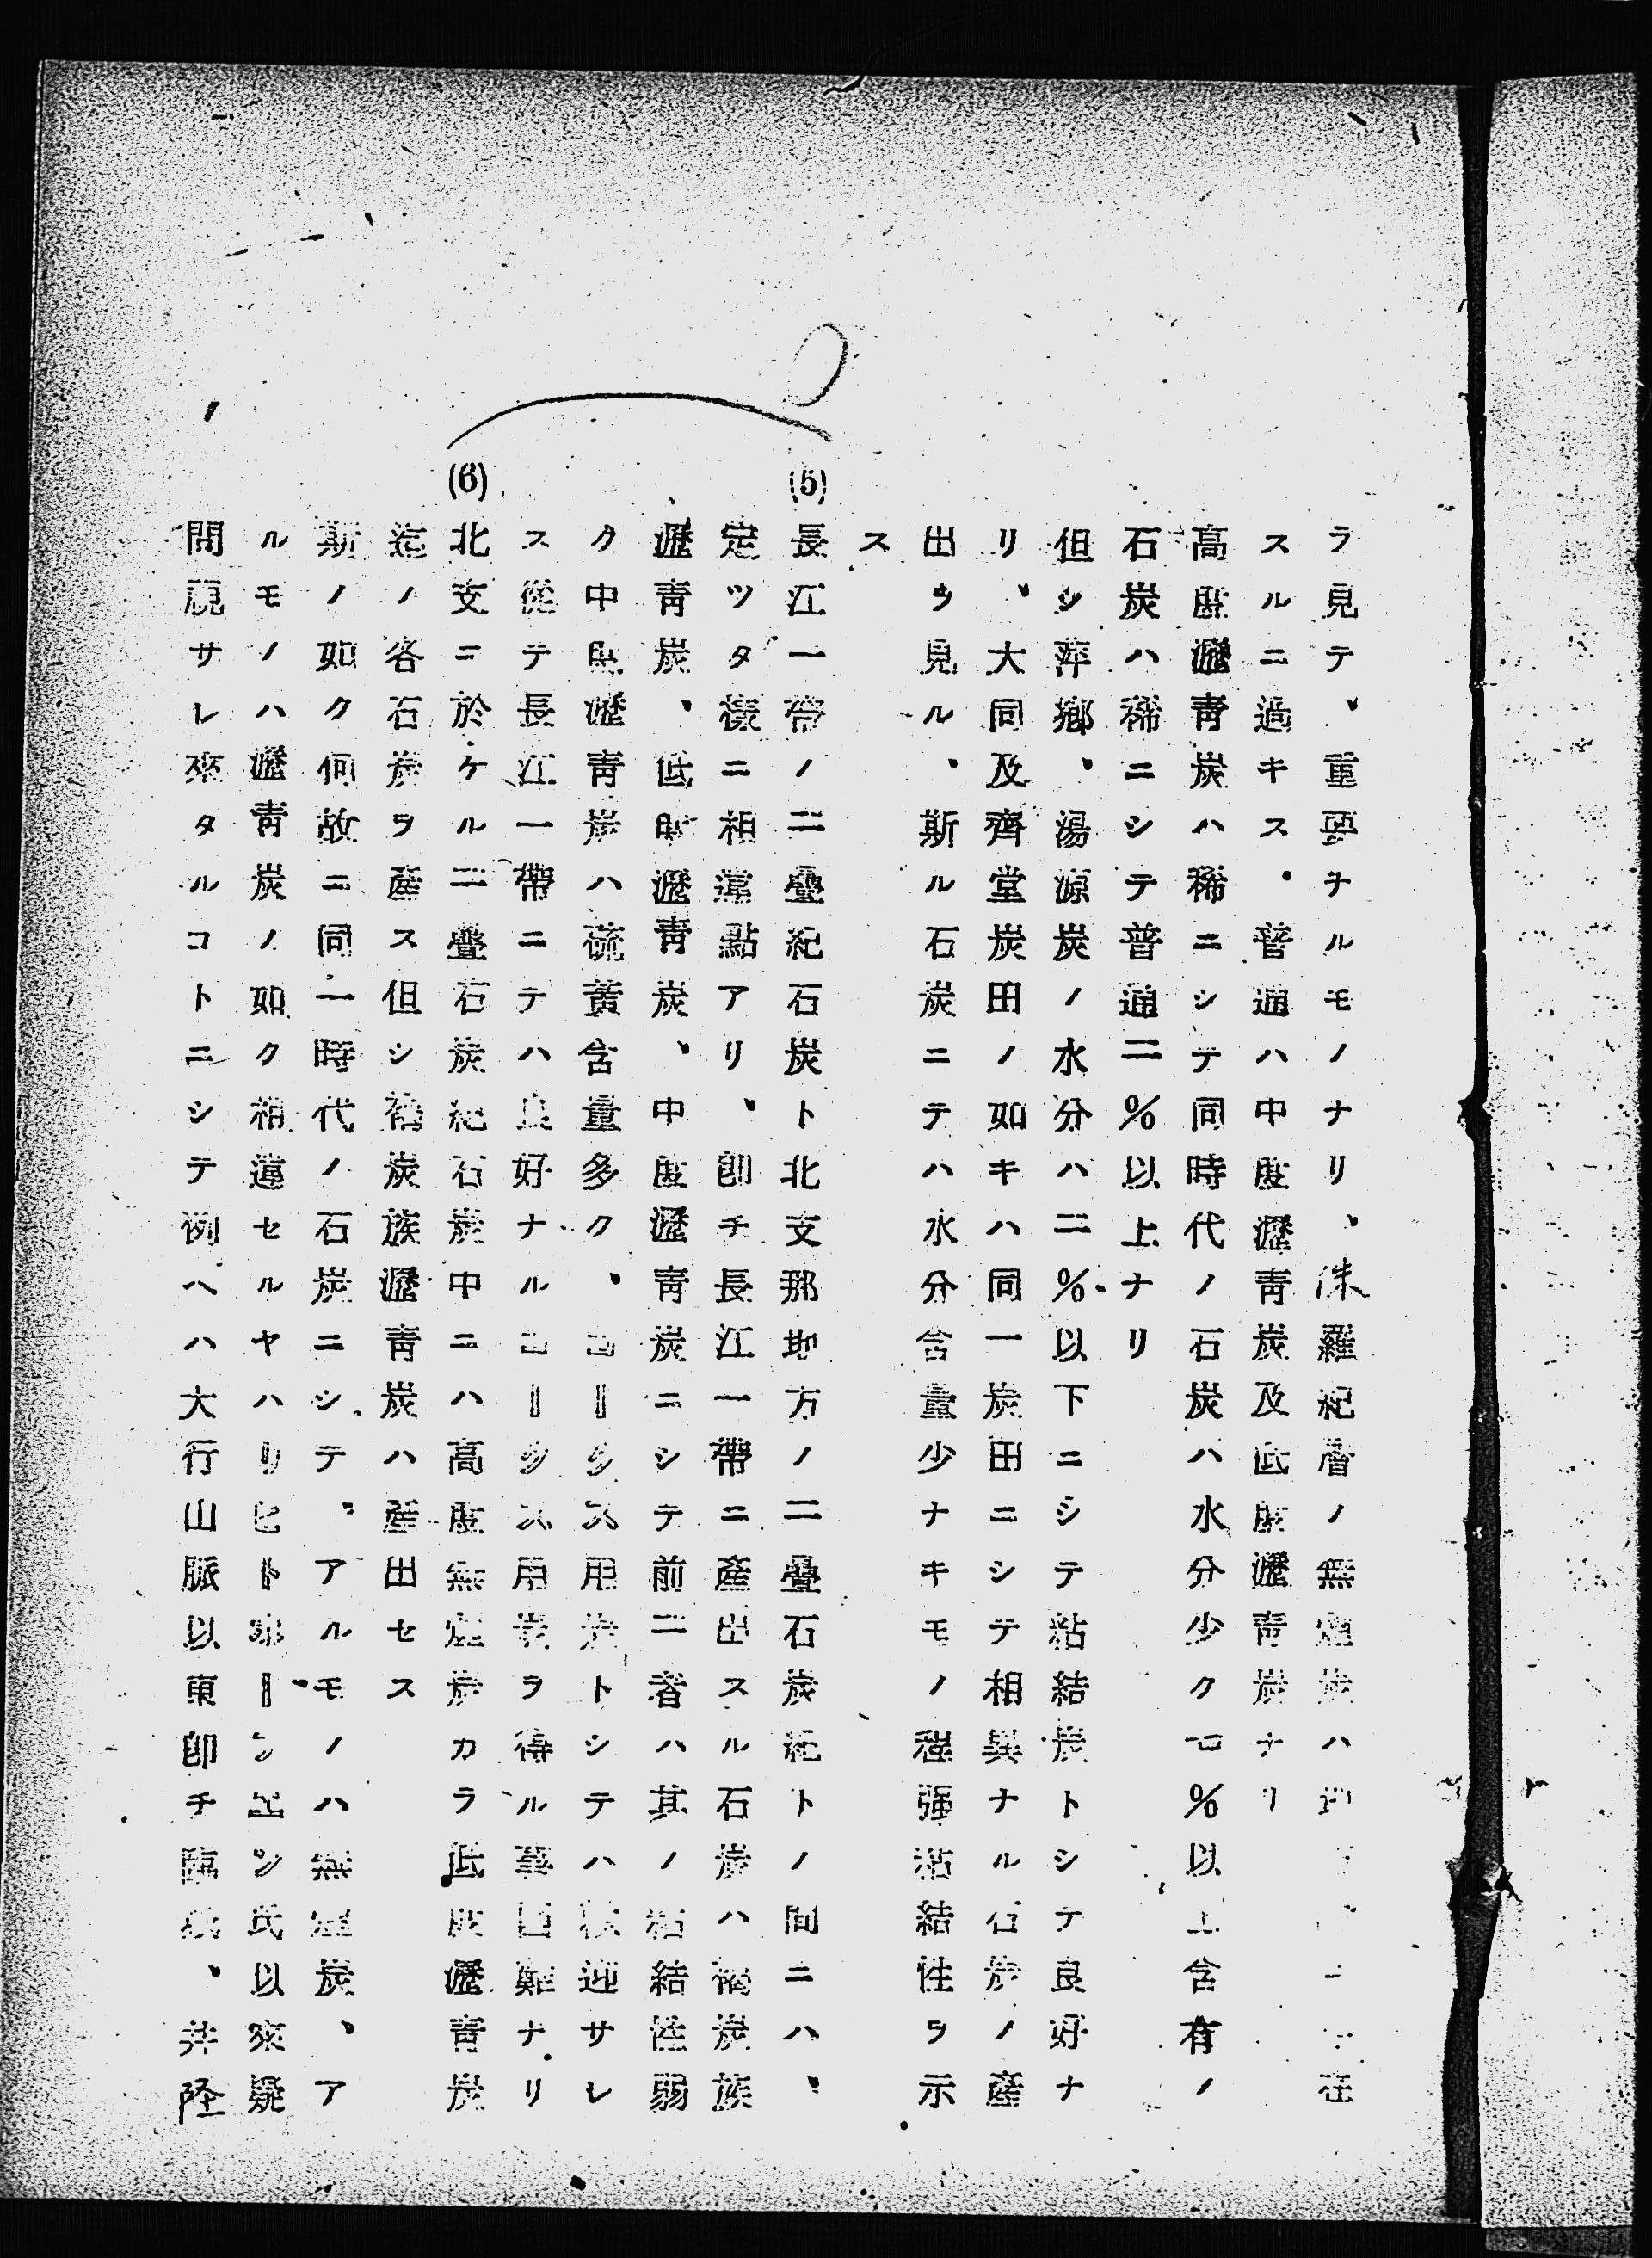 ラ見テ、重要ナルモノナリ、侏羅紀層ノ無煙炭ハ
在
スルニ過キス．普通ハ中度瀝靑炭及低度瀝靑炭ナリ
高度瀝靑炭ハ稀ニシテ同時代ノ石炭ハ水分少ク一％以上含有ノ
石炭ハ稀ニシテ普通二％以上ナリ
但シ萍鄕、湯源炭ノ水分ハ二％以下ニシテ粘結炭トシテ良好ナ
リ、大同及齊堂炭田ノ如キハ同一炭田ニシテ相異ナル石炭ノ產
出ヲ見ル、斯ル石炭ニテハ水分含量少ナキモノ程強粘結性ヲ示
ス
(5)長江一帶ノ二疊紀石炭ト北支那地方ノ二疊石炭紀トノ間ニハ、
定ツタ樣ニ相違點アリ、卽チ長江一帶ニ產出スル石炭ハ褐炭族、
瀝靑炭、低度瀝靑炭、中度瀝靑炭ニシテ前二者ハ其ノ粘結性弱
ク中度瀝靑炭ハ硫黃含量多ク、コークス用炭トシテハ歡迎サレ
ス從テ長江一帶ニテハ良好ナルコークス用炭ヲ得ル事困難ナリ
(6)北支ニ於ケル二疊石炭紀石炭中ニハ高度無煙炭カラ低度瀝靑炭
迄ノ各石炭ヲ產ス但シ褐炭族瀝靑炭ハ產出セス
斯ノ如ク何故ニ同一時代ノ石炭ニシテ、アルモノハ無煙炭、ア
ルモノハ瀝靑炭ノ如ク相違セルヤハリヒトホーフェン氏以來疑
問視サレ來タルコトニシテ例ヘハ大行山脈以東卽チ臨城、井陘